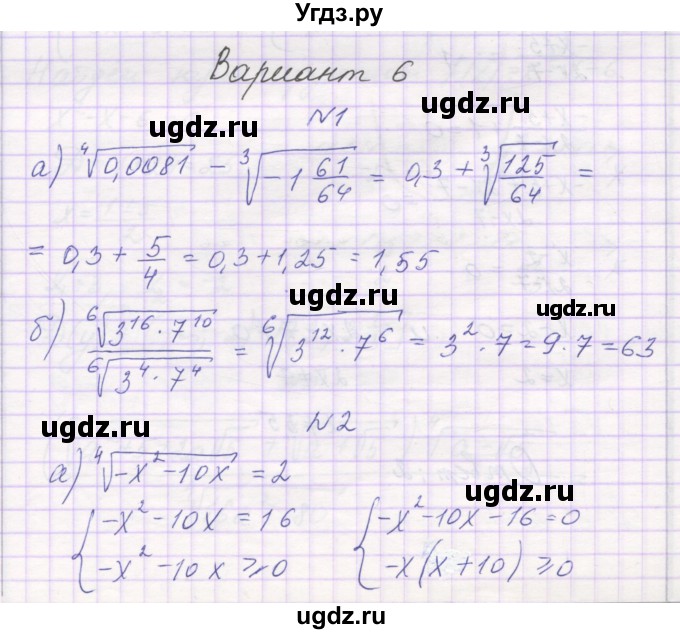 Угдз.ру
Вариант 6
ugdz.ru
ugdz.ru
N1
а) ⁴√0,0081 − ³√−1 61/64 = 0,3 + ³√125/64 =
ugdz.ru
= 0,3 + 5/4 = 0,3 + 1,25 = 1,55
ugdz.ru
ugdz.ru
б) ⁶√3¹⁶·7¹⁰ / ⁶√3⁴·7⁴ = ⁶√3¹²·7⁶ = 3²·7 = 9·7 = 63
ugdz.ru
ugdz.ru
N2
ugdz.ru
а) ⁴√−x²−10x = 2
ugdz.ru
{ −x²−10x = 16 { −x²−10x−16 = 0
−x²−10x ⩾ 0 −x(x+10) ⩾ 0
ugdz.ru
ugdz.ru
Угдз.ру